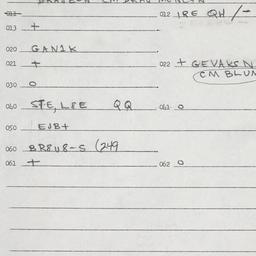 011 012 IRE QH /-
013 +
020 GAN1K
021 + 022 + GEVAKSN
CM BLUM
030 O
040 STE, LEE QQ 041 O
050 EJB+
060 BR8U8-S (249
061 + 062 O